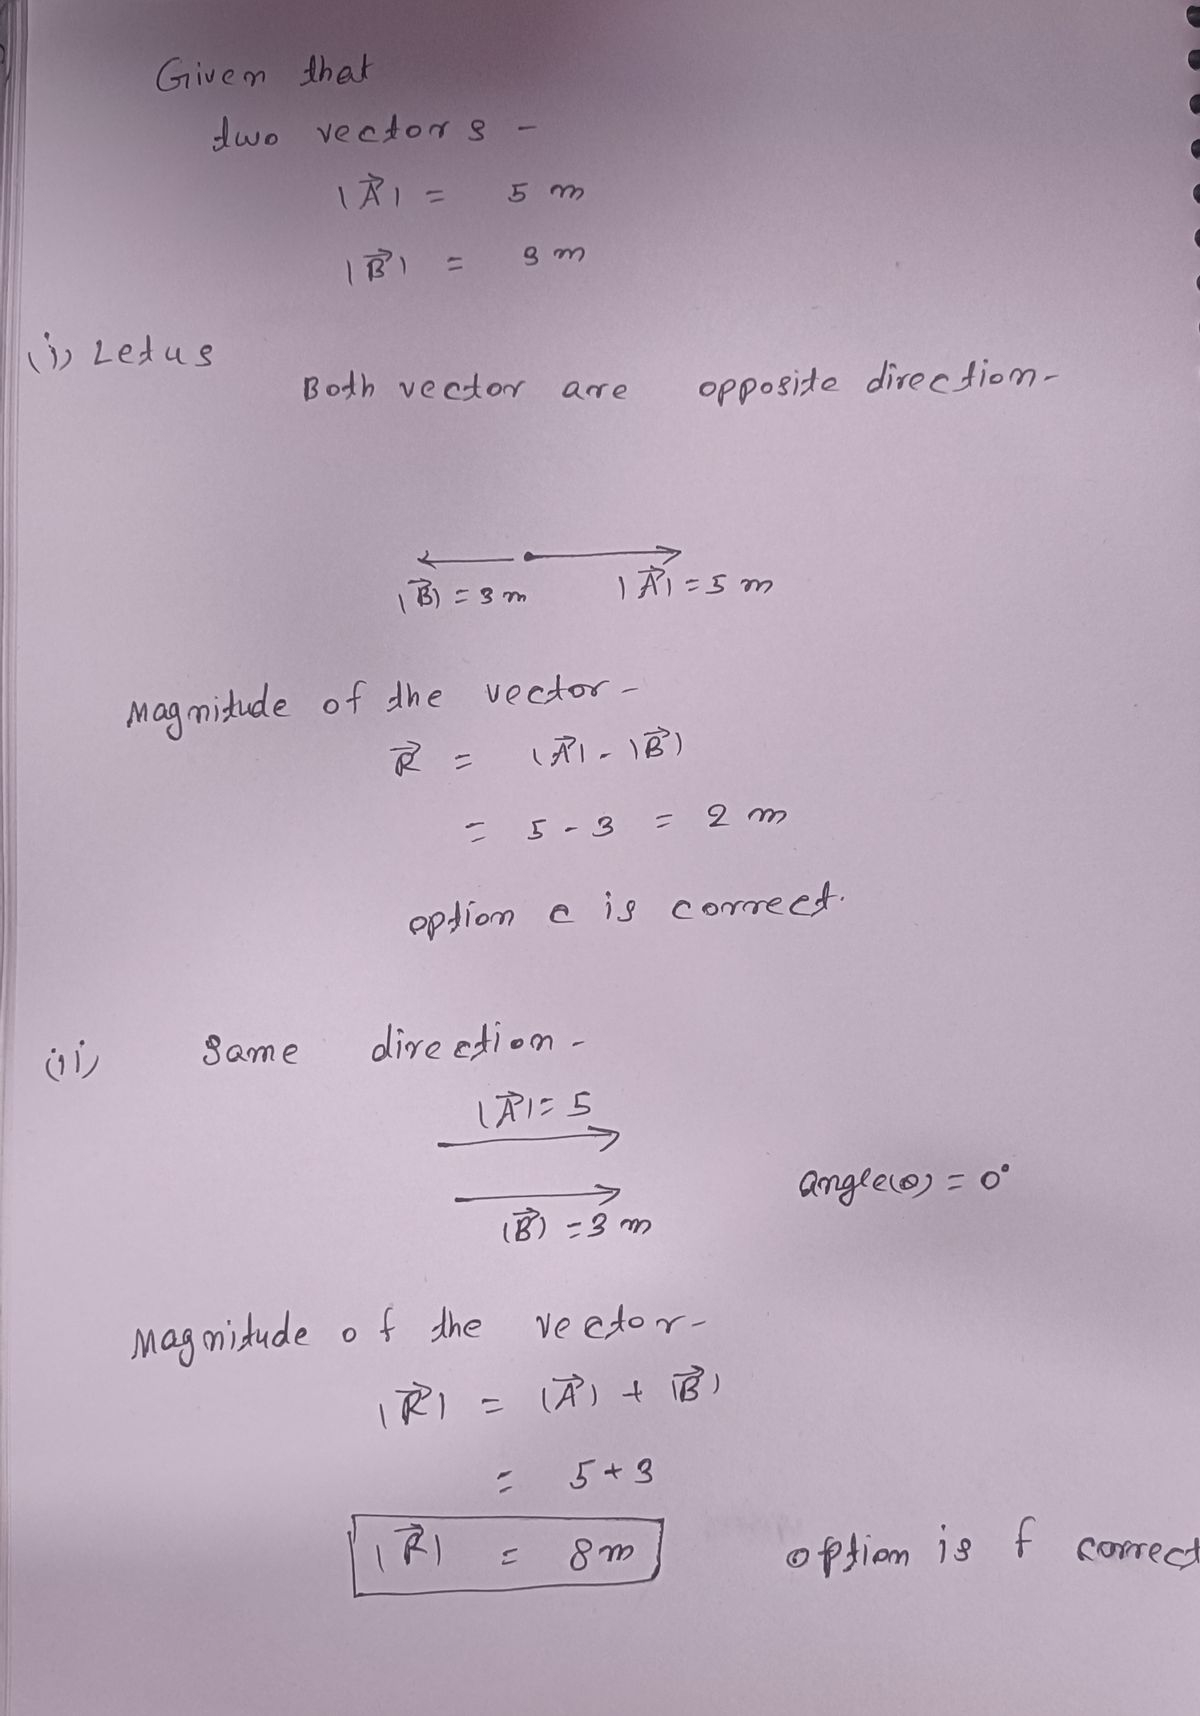 Given that
two vectors -
|A⃗| = 5 m
|B⃗| = 3 m
(i) Letus
Both vector are opposite direction-
|B⃗| = 3 m |A⃗| = 5 m
Magnitude of the vector-
R⃗ = |A⃗| - |B⃗|
= 5 - 3 = 2 m
option c is correct.
(ii) Same direction -
|A⃗| = 5
angle(θ) = 0°
|B⃗| = 3 m
Magnitude of the vector-
|R⃗| = |A⃗| + |B⃗|
= 5 + 3
|R⃗| = 8 m option is f correct